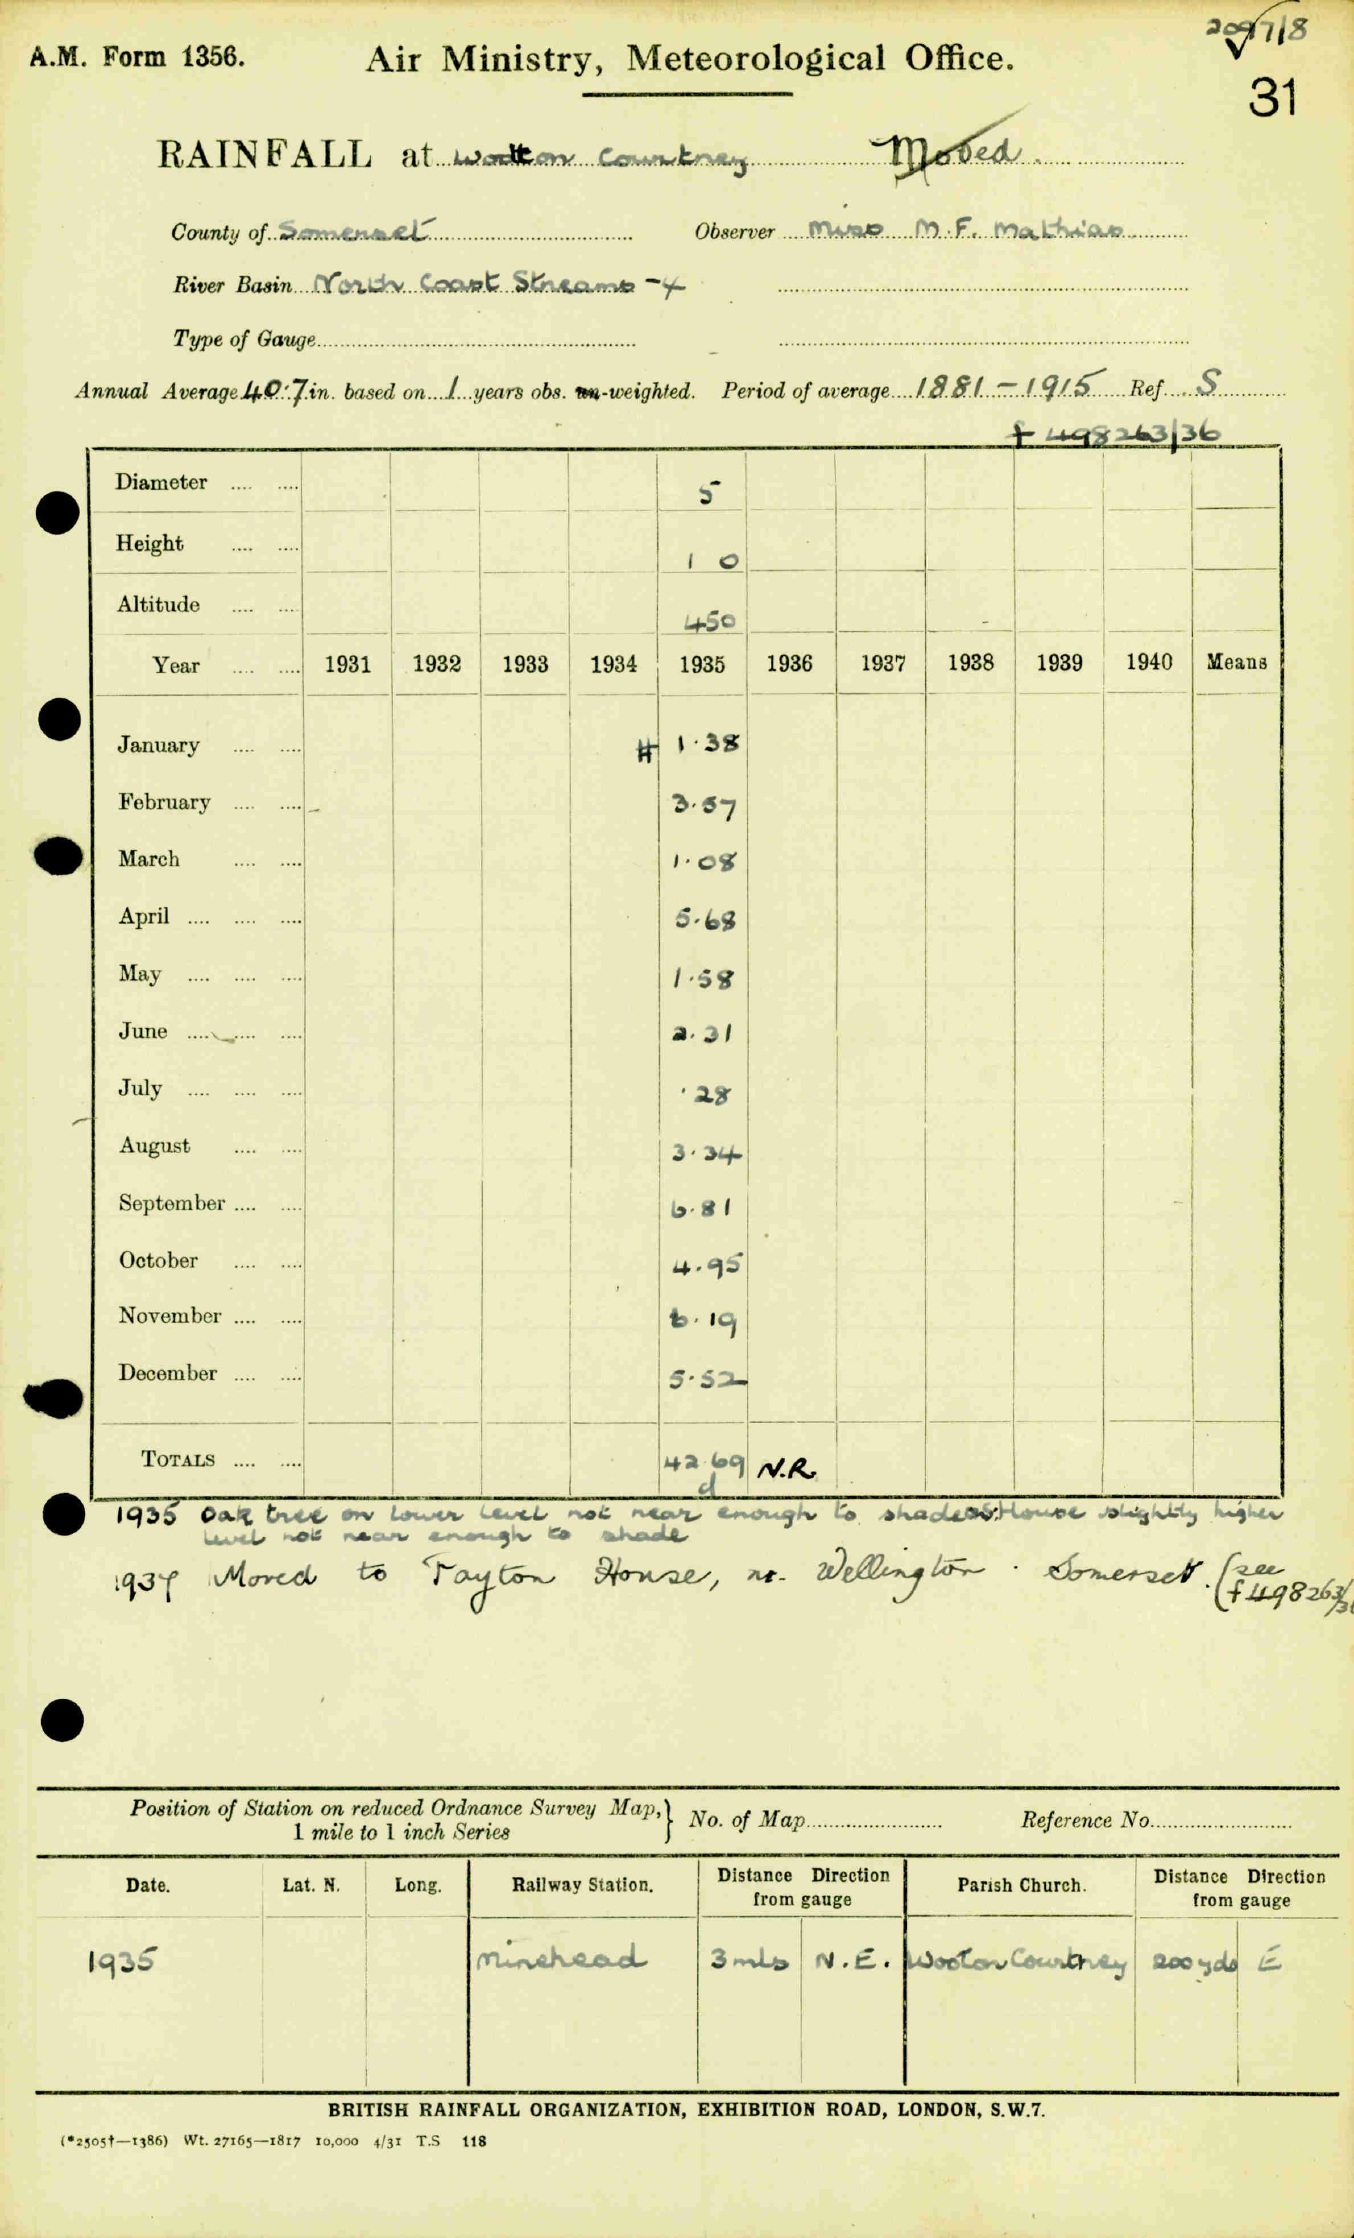 2097/8
A.M. Form 1356. Air Ministry, Meteorological Office.
31
RAINFALL at Wootton Courtney Moved.
County of Somerset Observer Miss M. F. Mathias
River Basin North Coast Streams - 4
Type of Gauge
Annual Average 40.7 in. based on 1 years obs. un-weighted. Period of average 1881-1915 Ref. S
f 498263/36
Diameter .... .... 5
Height .... .... 1 0
Altitude .... .... 450
Year .... .... 1931 1932 1933 1934 1935 1936 1937 1938 1939 1940 Means
January .... .... # 1.38
February .... .... 3.57
March .... .... 1.08
April .... .... .... 5.68
May .... .... .... 1.58
June .... .... .... 2.31
July .... .... .... .28
August .... .... 3.34
September .... .... 6.81
October .... .... 4.95
November .... .... 6.19
December .... .... 5.52
TOTALS .... .... 42.69 N.R.
d
1935 Oak tree on lower level not near enough to shade House slightly higher
level not near enough to shade
1937 Moved to Tayton House, nr. Wellington. Somerset. (see
f 498263/36
Position of Station on reduced Ordnance Survey Map, } No. of Map Reference No.
1 mile to 1 inch Series
Date. Lat. N. Long. Railway Station. Distance Direction from gauge Parish Church. Distance Direction from gauge
1935 Minehead 3 mls N.E. Wooton Courtney 200 yds E
BRITISH RAINFALL ORGANIZATION, EXHIBITION ROAD, LONDON, S.W.7.
(*2505†—1386) Wt. 27165—1817 10,000 4/31 T.S 118